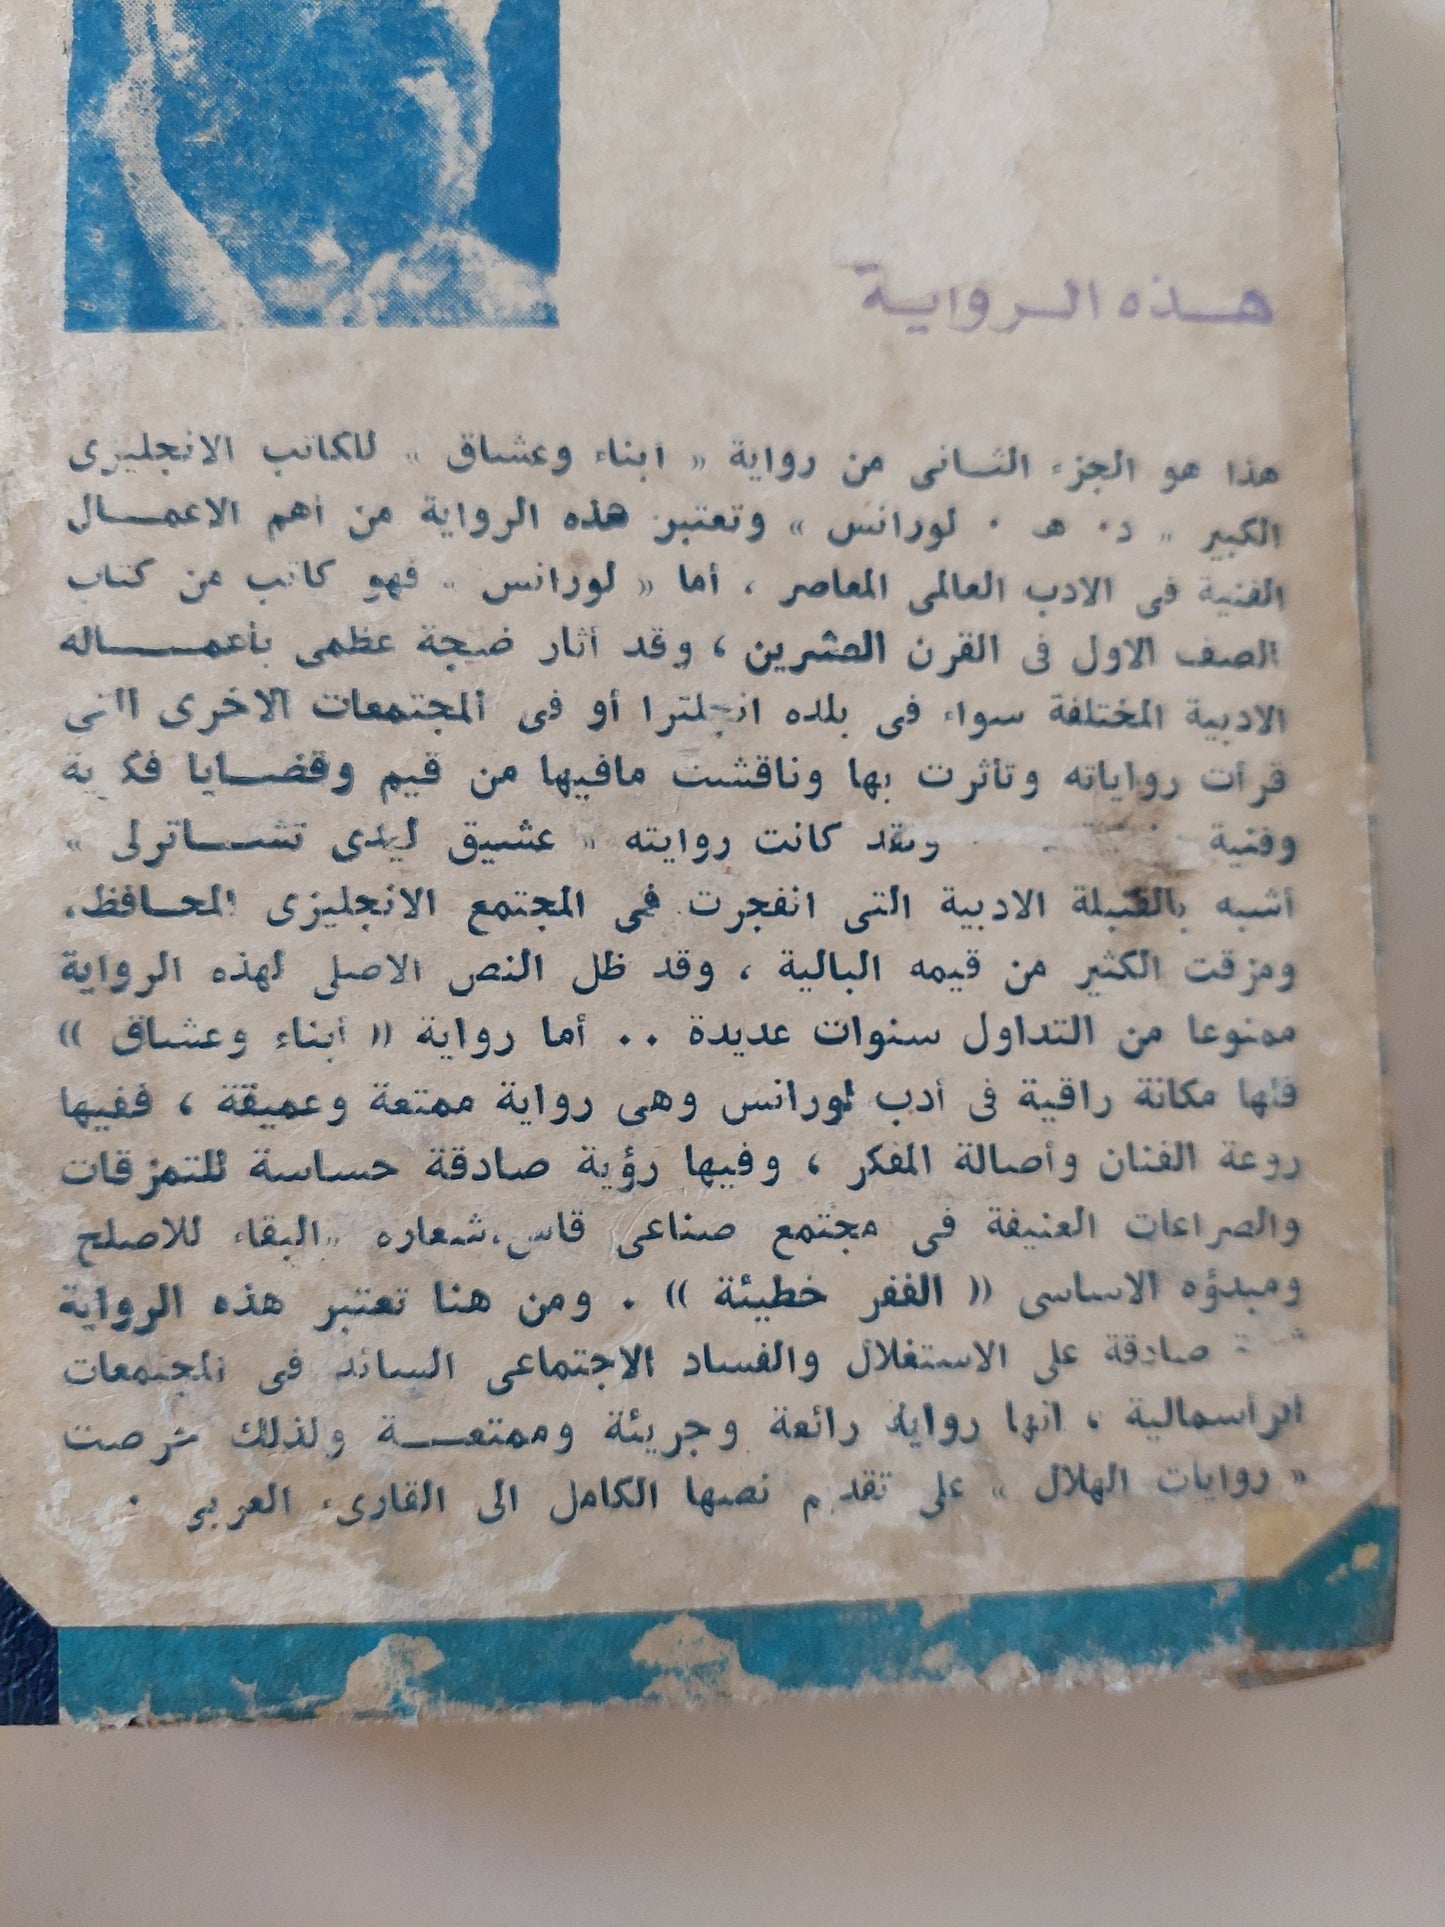 هذه الرواية
هذا هو الجزء الثانى من رواية « ابناء وعشاق » للكاتب الانجليزى
الكبير « د. هـ . لورانس » وتعتبر هذه الرواية من أهم الاعمال
الفنية فى الادب العالمى المعاصر ، أما « لورانس » فهو كاتب من كتاب
الصف الاول فى القرن العشرين ، وقد أثار ضجة عظمى بأعماله
الادبية المختلفة سواء فى بلده انجلترا أو فى المجتمعات الاخرى التى
قرأت رواياته وتأثرت بها وناقشت مافيها من قيم وقضايا فكرية
وفنية ولقد كانت روايته « عشيق ليدى تشاترلى »
أشبه بالقنبلة الادبية التى انفجرت فى المجتمع الانجليزى المحافظ،
ومزقت الكثير من قيمه البالية ، وقد ظل النص الاصلى لهذه الرواية
ممنوعا من التداول سنوات عديدة .. أما رواية « أبناء وعشاق »
فلها مكانة راقية فى أدب لورانس وهى رواية ممتعة وعميقة ، ففيها
روعة الفنان وأصالة المفكر ، وفيها رؤية صادقة حساسة للتمزقات
والصراعات العنيفة فى مجتمع صناعى قاس،شعاره «البقاء للاصلح
ومبدؤه الاساسى « الفقر خطيئة » . ومن هنا تعتبر هذه الرواية
صادقة على الاستغلال والفساد الاجتماعى السائد فى المجتمعات
الرأسمالية ، انها رواية رائعة وجريئة وممتعة ولذلك حرصت
« روايات الهلال » على تقديم نصها الكامل الى القارىء العربى .